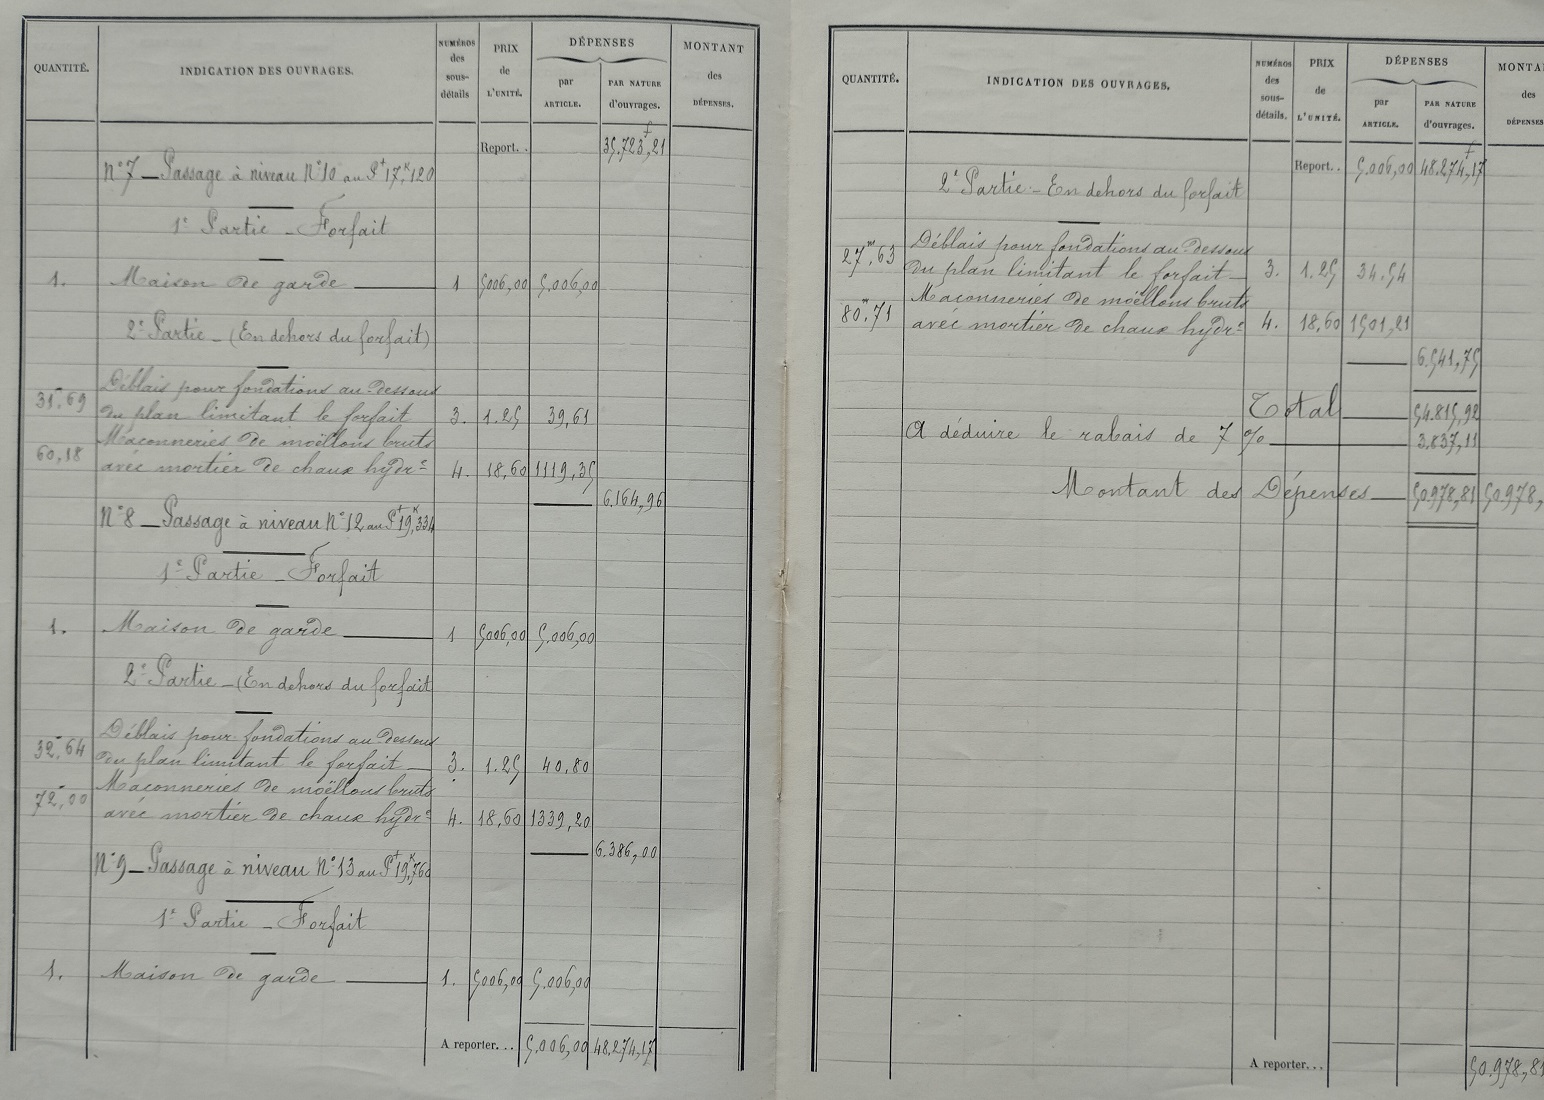 QUANTITÉ. INDICATION DES OUVRAGES. NUMÉROS des sous-détails PRIX de L'UNITÉ. DÉPENSES par ARTICLE. PAR NATURE d'ouvrages. MONTANT des DÉPENSES.
Report. . 35.723f,21
N°7 _ Passage à niveau N°10 au Pt 17K,120
1e Partie _ Forfait
1. Maison de garde 1 5006,00 5.006,00
2e Partie _ (En dehors du forfait)
Déblais pour fondations au-dessous
31m,69 du plan limitant le forfait 3. 1.25 39,61
Maçonneries de moëllons bruts
60,18 avec mortier de chaux hydre 4. 18,60 1119,35
6.164,96
N°8 _ Passage à niveau N°12 au Pt 19K,334
1e Partie _ Forfait
1. Maison de garde 1 5006,00 5.006,00
2e Partie _ (En dehors du forfait
Déblais pour fondations au-dessous
32m,64 du plan limitant le forfait 3. 1.25 40,80
Maçonneries de moëllons bruts
72m,00 avec mortier de chaux hydre 4. 18,60 1339,20
6.386,00
N°9 _ Passage à niveau N°13 au Pt 19K,760
1e Partie _ Forfait
1. Maison de garde 1. 5006,00 5.006,00
A reporter. . . 5.006,00 48.274,17
QUANTITÉ. INDICATION DES OUVRAGES. NUMÉROS des sous-détails. PRIX de L'UNITÉ. DÉPENSES par ARTICLE. PAR NATURE d'ouvrages. MONTA des DÉPENSES
Report. . 5.006,00 48.274f,17
2e Partie _ En dehors du forfait
Déblais pour fondations au-dessous
27m,63 du plan limitant le forfait 3. 1.25 34.54
Maçonneries de moëllons bruts
80m,71 avec mortier de chaux hydre 4. 18,60 1501,21
6.541,75
Total 54.815,92
A déduire le rabais de 7 % 3.837,11
Montant des Dépenses 50.978,81 50.978,
A reporter. . . 50.978,81